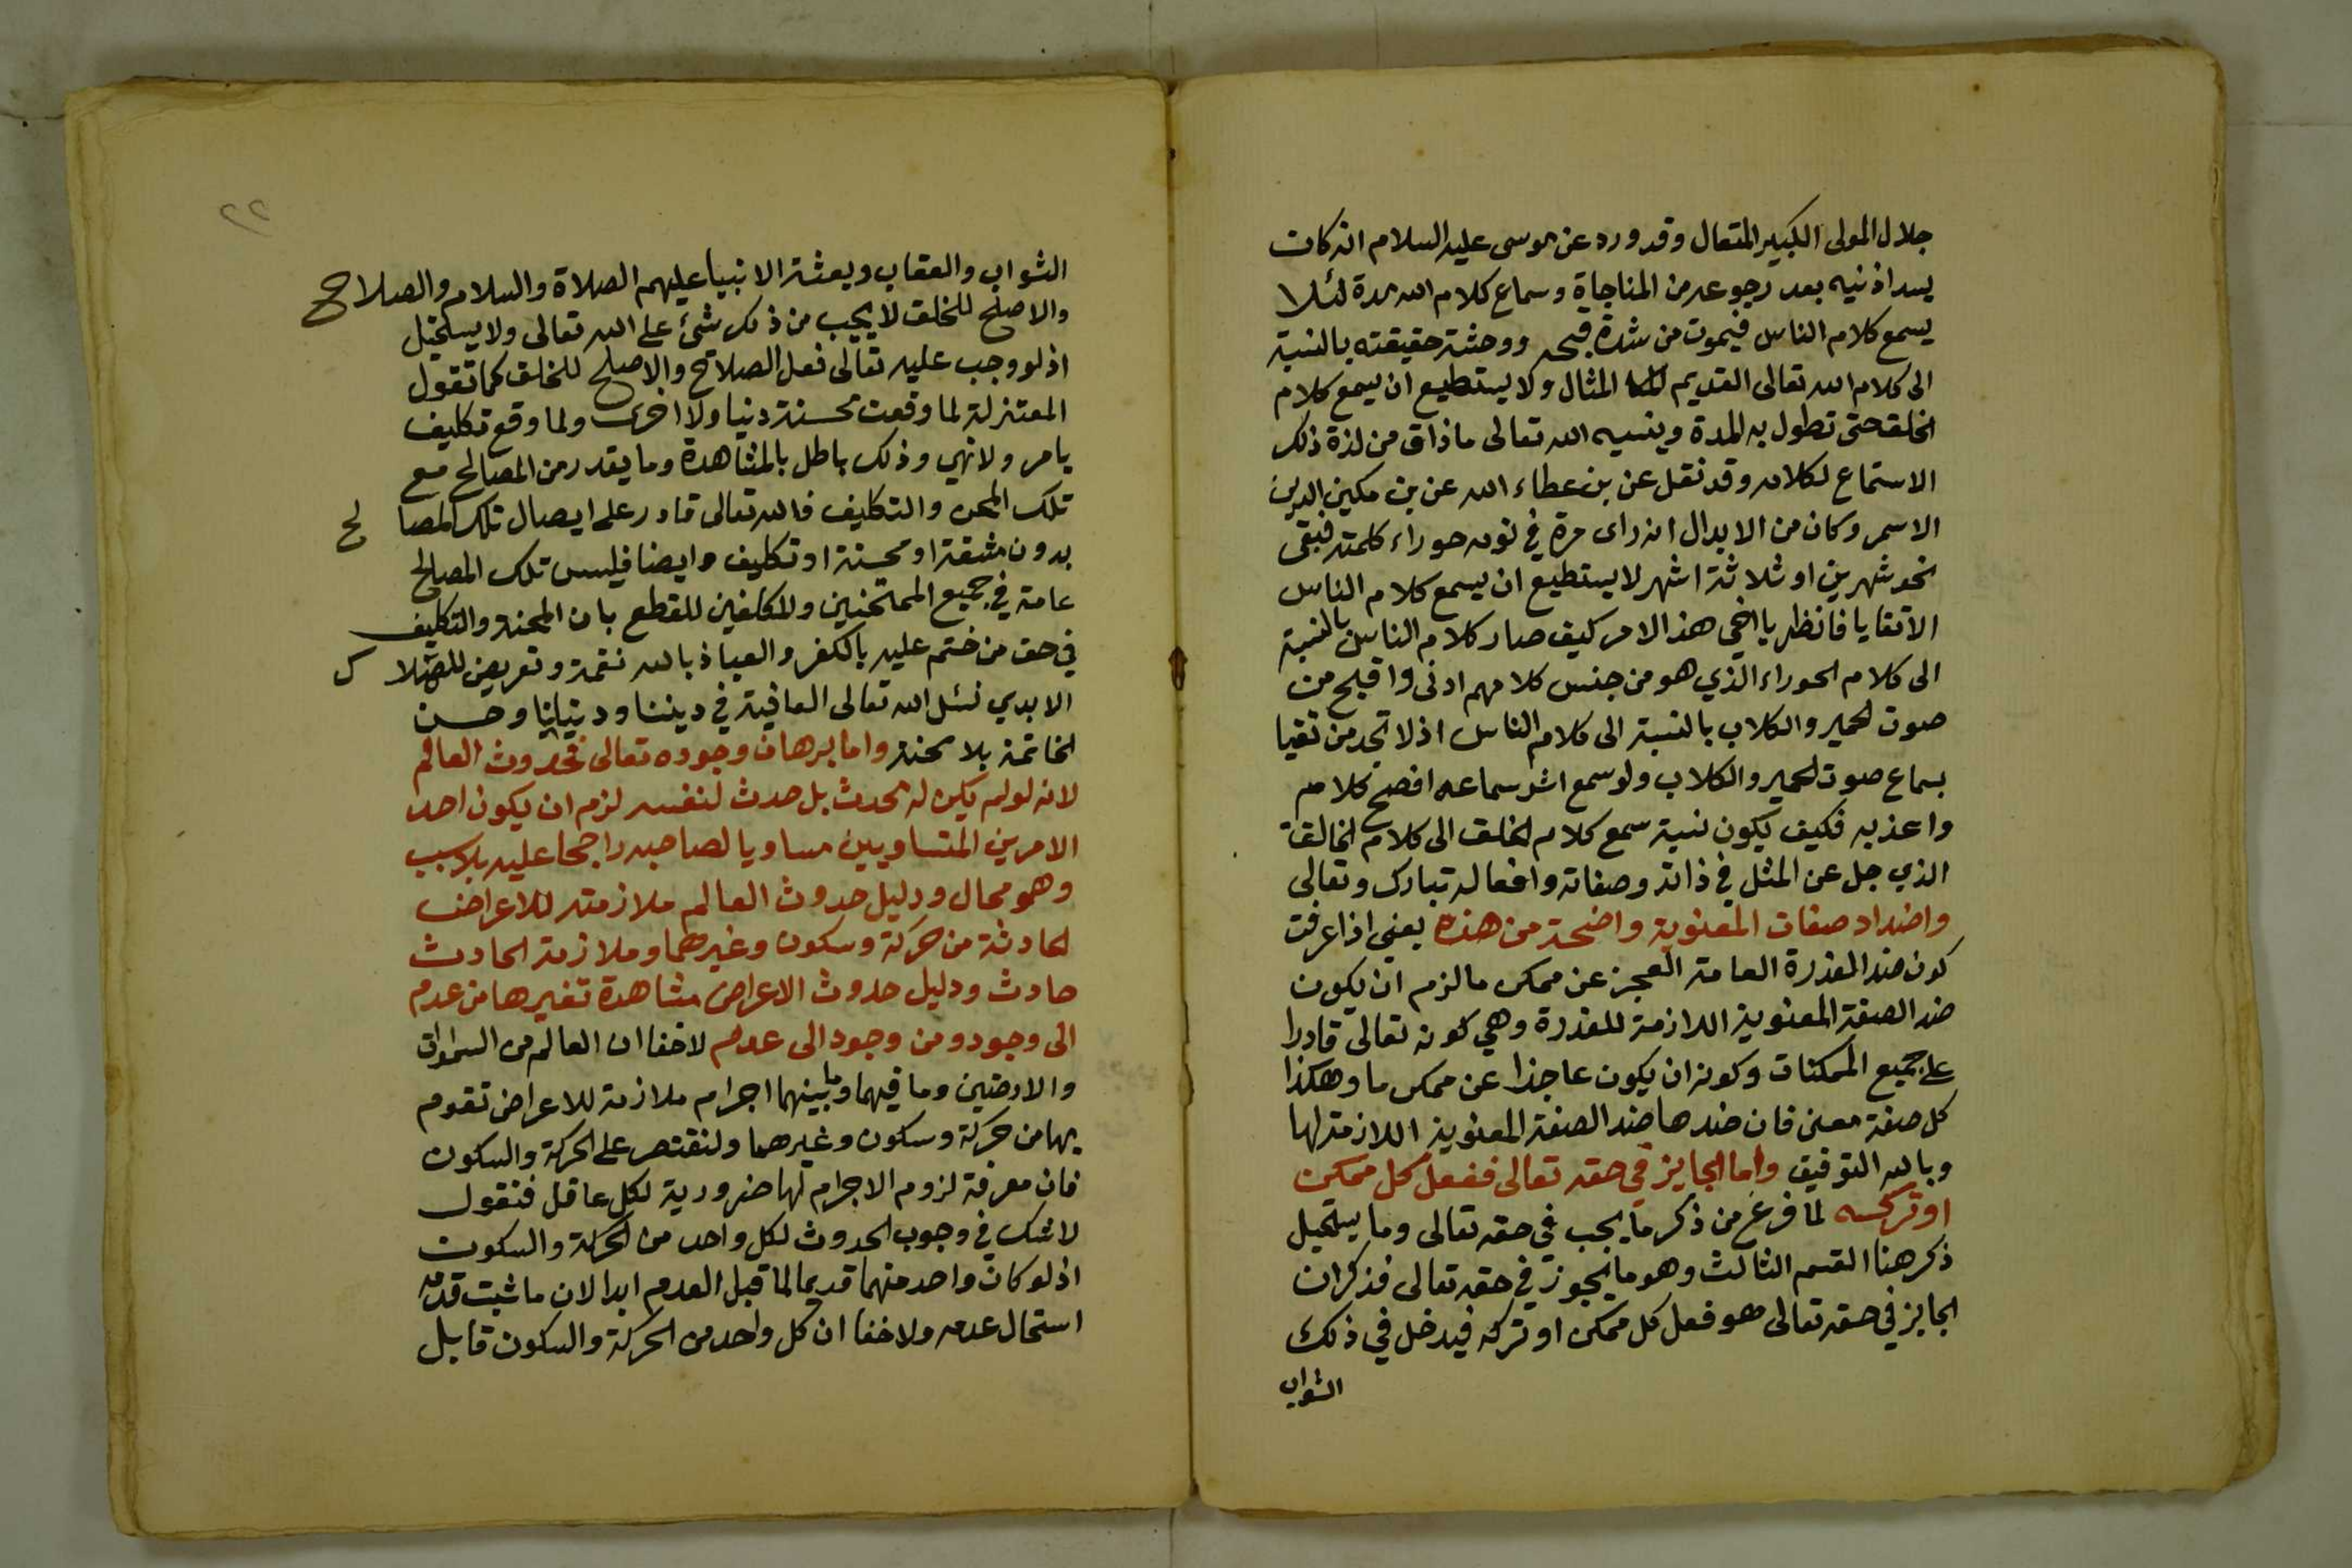 جلال المولى الكبير المتعال وقد ورد عن موسى عليه السلام انه كان
يسد اذنيه بعد رجوعه من المناجاة وسماع كلام الله مدة لئلا
يسمع كلام الناس فيموت من شدة قبحه ووحشة حقيقته بالنسبة
الى كلام الله تعالى القديم المثال ولا يستطيع ان يسمع كلام
الخلق حتى تطول به المدة وينسيه الله تعالى ما ذاق من لذة ذلك
الاستماع لكلامه وقد نقل عن بن عطاء الله عن بن مكين الدين
الاسمر وكان من الابدال انه راى مرة في نومه حوراء كلمته فبقى
نحو شهرين او ثلاثة اشهر لا يستطيع ان يسمع كلام الناس
الا تقايا فانظر يا اخي هذا الامر كيف صار كلام الناس بالنسبة
الى كلام الحوراء الذي هو من جنس كلامهم ادنى واقبح من
صوت الحمير والكلاب بالنسبة الى كلام الناس اذ لا تجد من تقيا
بسماع صوت الحمير والكلاب ولو سمع اثر سماعه افصح كلام
واعذبه فكيف يكون نسبة سمع كلام الخلق الى كلام الخالق
الذي جل عن المثل في ذاته وصفاته وافعاله تبارك وتعالى
واضداد صفات المعنوية واضحة من هذه يعني اذا عرفت
كون ضد القدرة العامة العجز عن ممكن ما لزم ان يكون
ضد الصفة المعنوية اللازمة للقدرة وهي كونه تعالى قادرا
على جميع الممكنات وكونه ان يكون عاجزا عن ممكن ما وهكذا
كل صفة معنى فان ضدها ضد الصفة المعنوية اللازمة لها
وبالله التوفيق واما الجايز في حقه تعالى ففعل كل ممكن
او تركه لما فرغ من ذكر ما يجب في حقه تعالى وما يستحيل
ذكر هنا القسم الثالث وهو ما يجوز في حقه تعالى فذكر ان
الجايز في حقه تعالى هو فعل كل ممكن او تركه فيدخل في ذلك
الثواب
٢٢
الثواب والعقاب وبعثة الانبيا عليهم الصلاة والسلام والصلاح
والاصلح للخلق لا يجب من ذلك شئ على الله تعالى ولا يستحيل
اذ لو وجب عليه تعالى فعل الصلاح والاصلح للخلق كما تقول
المعتزلة لما وقعت محنة دنيا ولا اخرى ولما وقع تكليف
بامر ولا نهي وذلك باطل بالمشاهدة وما يقدر من المصالح مع
تلك المحن والتكليف فالله تعالى قادر على ايصال تلك المصالح
بدون مشقة او محنة او تكليف وايضا فليس تلك المصالح
عامة في جميع الممتحنين والمكلفين للقطع بان المحنة والتكليف
في حق من ختم عليه بالكفر والعياذ بالله نقمة وتعريض للهلاك
الابدي نسئل الله تعالى العافية في ديننا ودنيانا وحسن
الخاتمة بلا محنة واما برهان وجوده تعالى فحدوث العالم
لانه لو لم يكن له محدث بل حدث لنفسه لزم ان يكون احد
الامرين المتساويين مساويا لصاحبه راجحا عليه بلا سبب
وهو محال ودليل حدوث العالم ملازمته للاعراض
الحادثة من حركة وسكون وغيرهما وملازمة الحادث
حادث ودليل حدوث الاعراض مشاهدة تغيرها من عدم
الى وجود ومن وجود الى عدم لا خفا ان العالم من السموات
والارضين وما فيهما وما بينهما اجرام ملازمة للاعراض تقوم
بها من حركة وسكون وغيرهما ولنقتصر على الحركة والسكون
فان معرفة لزوم الاجرام لها ضرورية لكل عاقل فنقول
لا شك في وجوب الحدوث لكل واحد من الحركة والسكون
اذ لو كان واحد منهما قديما لما قبل العدم ابدا لان ما ثبت قدمه
استحال عدمه ولا خفا ان كل واحد من الحركة والسكون قابل